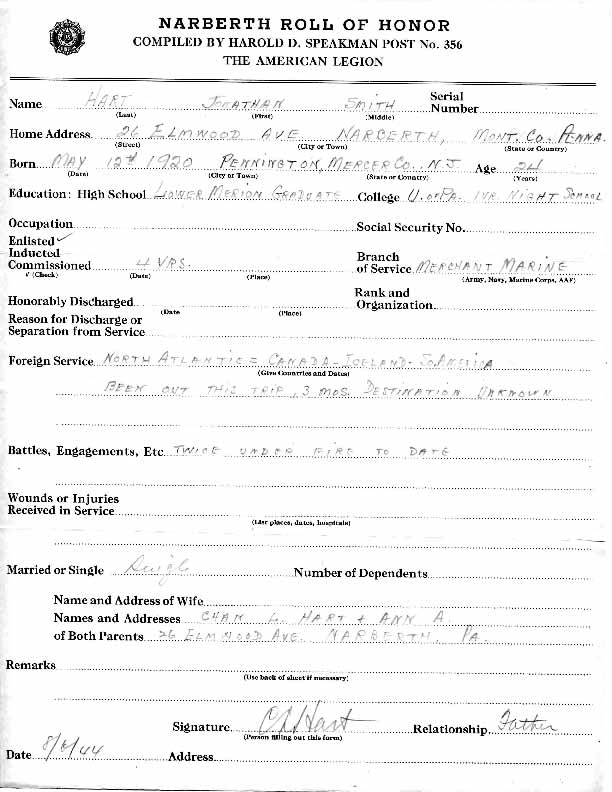 NARBERTH ROLL OF HONOR
COMPILED BY HAROLD D. SPEAKMAN POST No. 356
THE AMERICAN LEGION
Name HART JONATHAN SMITH Serial Number
(Last) (First) (Middle)
Home Address 26 ELMWOOD AVE NARBERTH, MONT. CO. PENNA.
(Street) (City or Town) (State or Country)
Born MAY 12th 1920 PENNINGTON, MERCER CO., N.J Age 24
(Date) (City or Town) (State or Country) (Years)
Education: High School LOWER MERION GRADUATE College U. OF PA. 1 YR. NIGHT SCHOOL
Occupation Social Security No.
Enlisted ✓
Inducted
Commissioned 4 YRS. Branch of Service MERCHANT MARINE
✓ (Check) (Date) (Place) (Army, Navy, Marine Corps, AAF)
Honorably Discharged Rank and Organization
(Date (Place)
Reason for Discharge or
Separation from Service
Foreign Service NORTH ATLANTIC = CANADA - ICELAND - SO. AMERICA
(Give Countries and Dates)
BEEN OUT THIS TRIP, 3 MOS. DESTINATION UNKNOWN
Battles, Engagements, Etc TWICE UNDER FIRE TO DATE
Wounds or Injuries
Received in Service
(List places, dates, hospitals)
Married or Single Single Number of Dependents
Name and Address of Wife
Names and Addresses CHAS. L. HART & ANN A.
of Both Parents 26 ELMWOOD AVE. NARBERTH, PA.
Remarks
(Use back of sheet if necessary)
Signature C L Hart Relationship Father
(Person filling out this form)
Date 8/6/44 Address